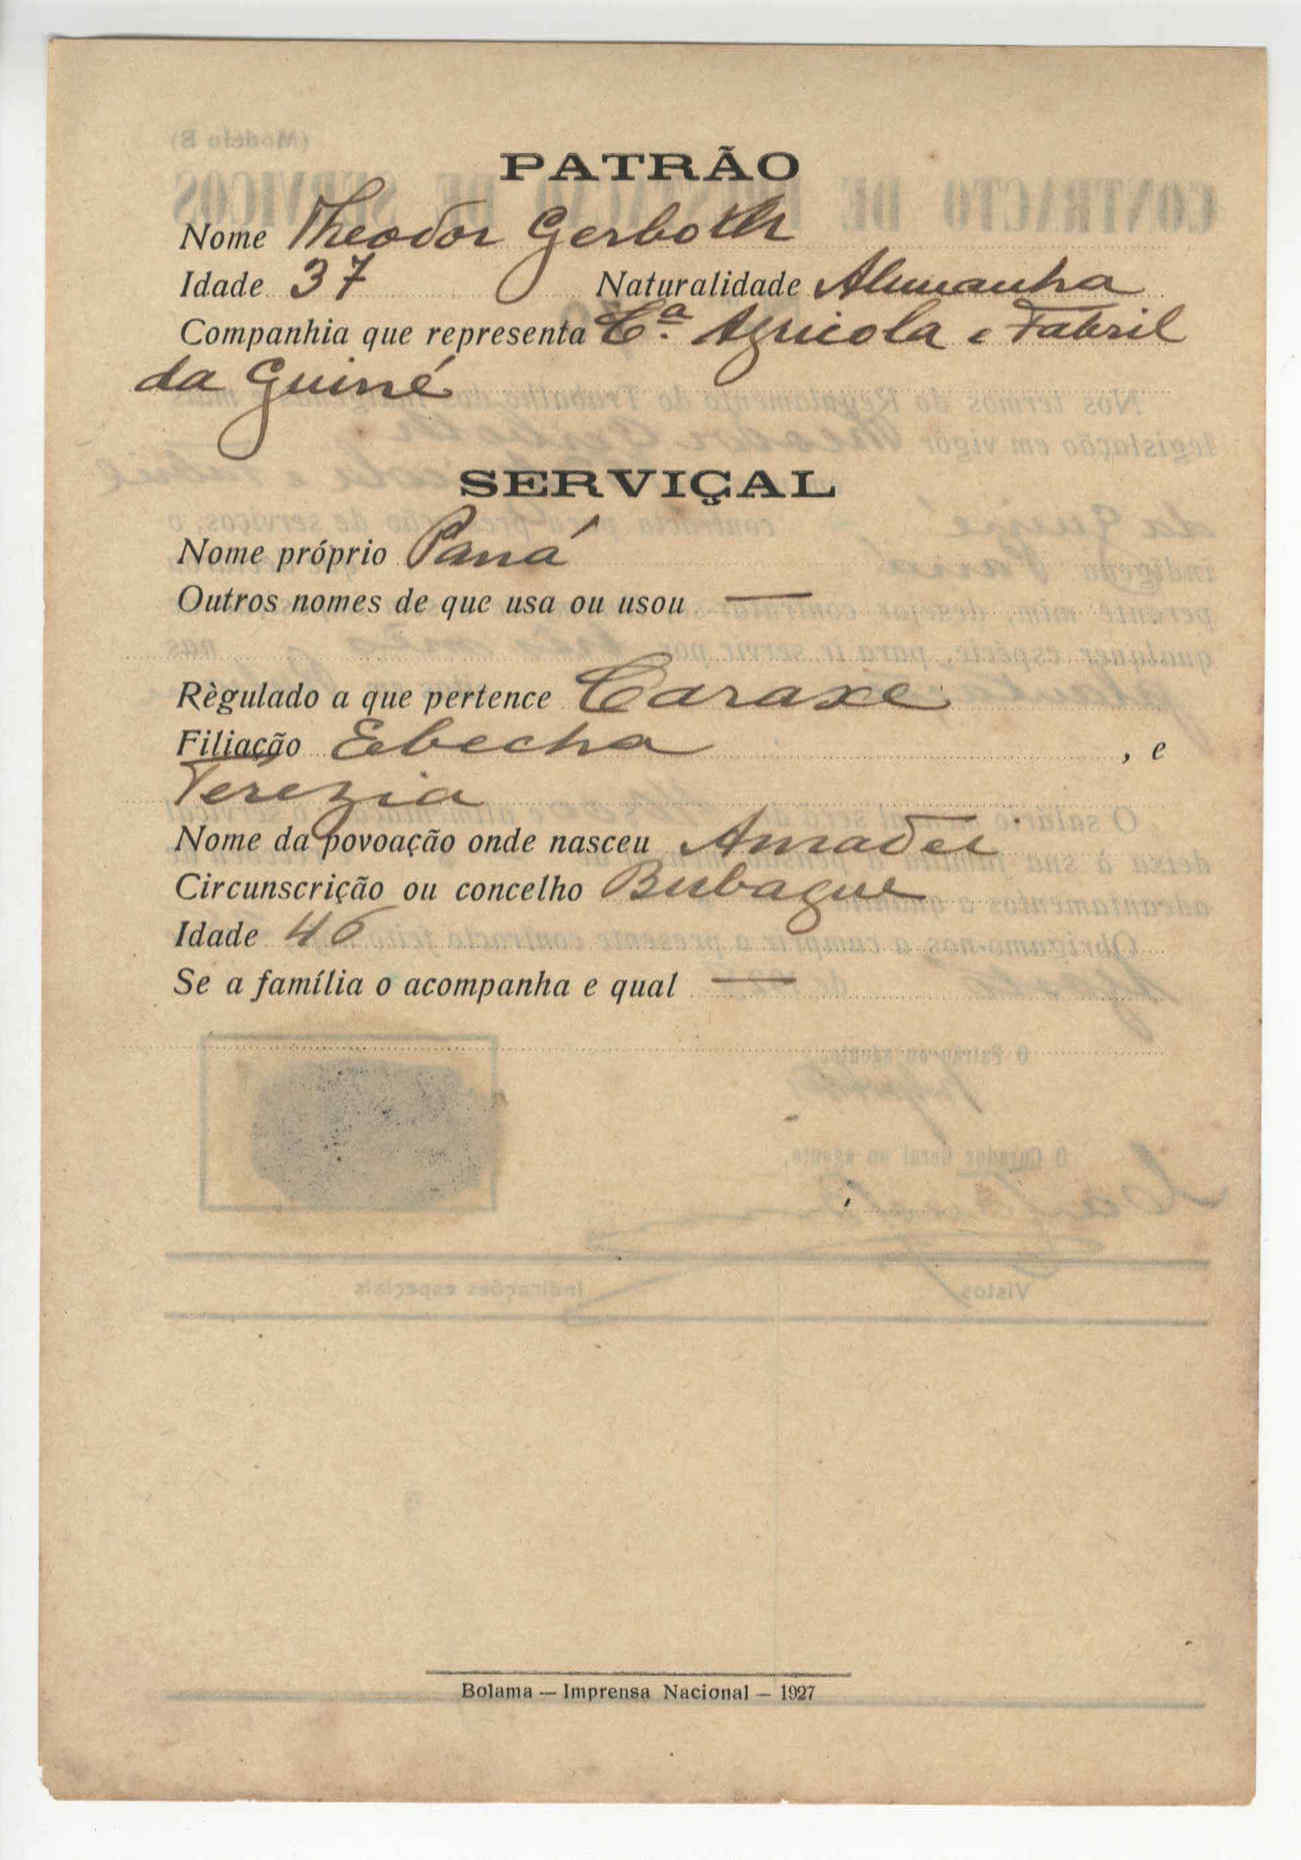 PATRÃO
Nome Theodor Gerboth
Idade 37 Naturalidade Alemanha
Companhia que representa Cª Agricola e Fabril
da Guiné
SERVIÇAL
Nome próprio Paná
Outros nomes de que usa ou usou —
Règulado a que pertence Caraxe
Filiação Ebecha, e
Terezia
Nome da povoação onde nasceu Amadei
Circunscrição ou concelho Bubaque
Idade 46
Se a família o acompanha e qual —
Bolama — Imprensa Nacional — 1927